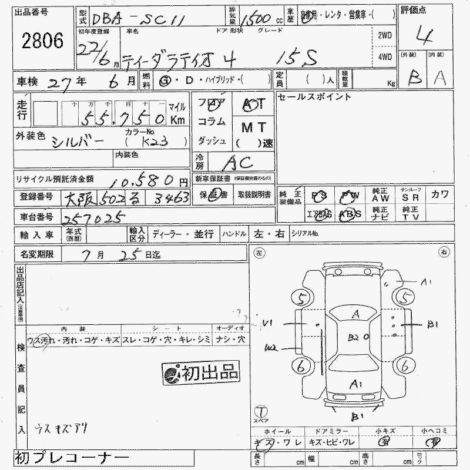 出品番号
2806
型式 DBA-SC11
排気量 1500 cc
車歴 自家用・レンタ・営業車・( )
評価点
4
初年度登録 22/6月
車名 ティーダラティオ
ドア 形状 4
グレード 15S
2WD
4WD
(外装) (内装)
B A
車検 27年 6月
燃料 G・D・ハイブリッド・( )
定員 ( )人
積載量 Kg
走行
十万 万 千 百 十
55750
マイル
Km
外装色
シルバー
カラーNo.
(K23)
内装色
フロア AT
コラム MT
ダッシュ ( )速
冷房 AC
セールスポイント
リサイクル預託済金額
10,580 円
登録番号 大阪 502 る 3463
車台番号
257025
新車保証書
保証書 取扱説明書
純正装備品
PS PW 純正AW サンルーフ SR カワ
エアB ABS 純正ナビ 純正TV
輸入車 年式(西暦) 輸入区分 ディーラー・並行 ハンドル 左・右 シリアルNo.
名変期限 7月 25日迄
出品店記入(注意事項)
左
右
内装 シート オーディオ
ウス汚れ・汚れ・コゲ・キズ スレ・コゲ・穴・キレ・シミ ナシ・穴
検査員記入
初出品
ウスキズアリ
初プレコーナー
A1
5
5
V1
A
B1
W2
B2
6
6
A1
B1
T
スペア
ホイール ドアミラー 小キズ 小ヘコミ
キズ・ワレ キズ・ヒビ・ワレ 有 有
長さ cm 幅 cm 高さ cm